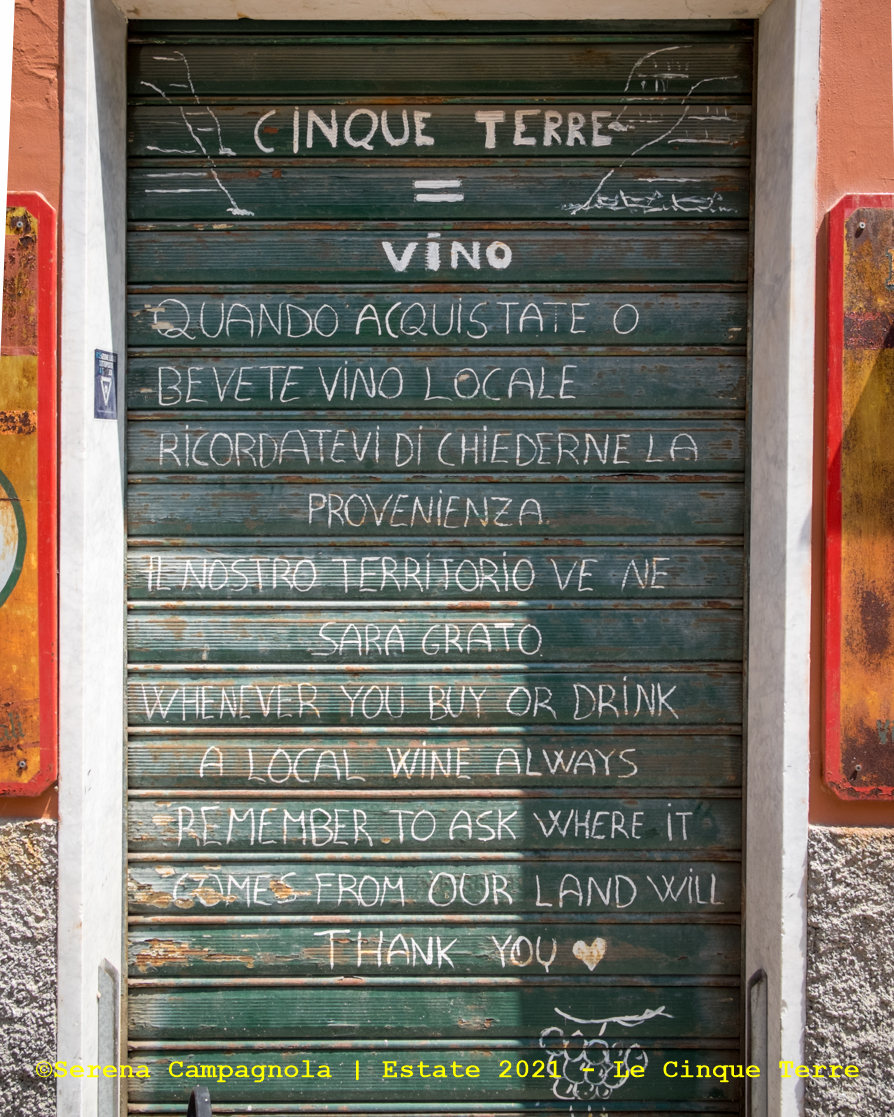 CINQUE TERRE
=
VINO
QUANDO ACQUISTATE O
BEVETE VINO LOCALE
RICORDATEVI DI CHIEDERNE LA
PROVENIENZA.
IL NOSTRO TERRITORIO VE NE
SARÀ GRATO.
WHENEVER YOU BUY OR DRINK
A LOCAL WINE ALWAYS
REMEMBER TO ASK WHERE IT
COMES FROM OUR LAND WILL
THANK YOU ♥
©Serena Campagnola | Estate 2021 - Le Cinque Terre